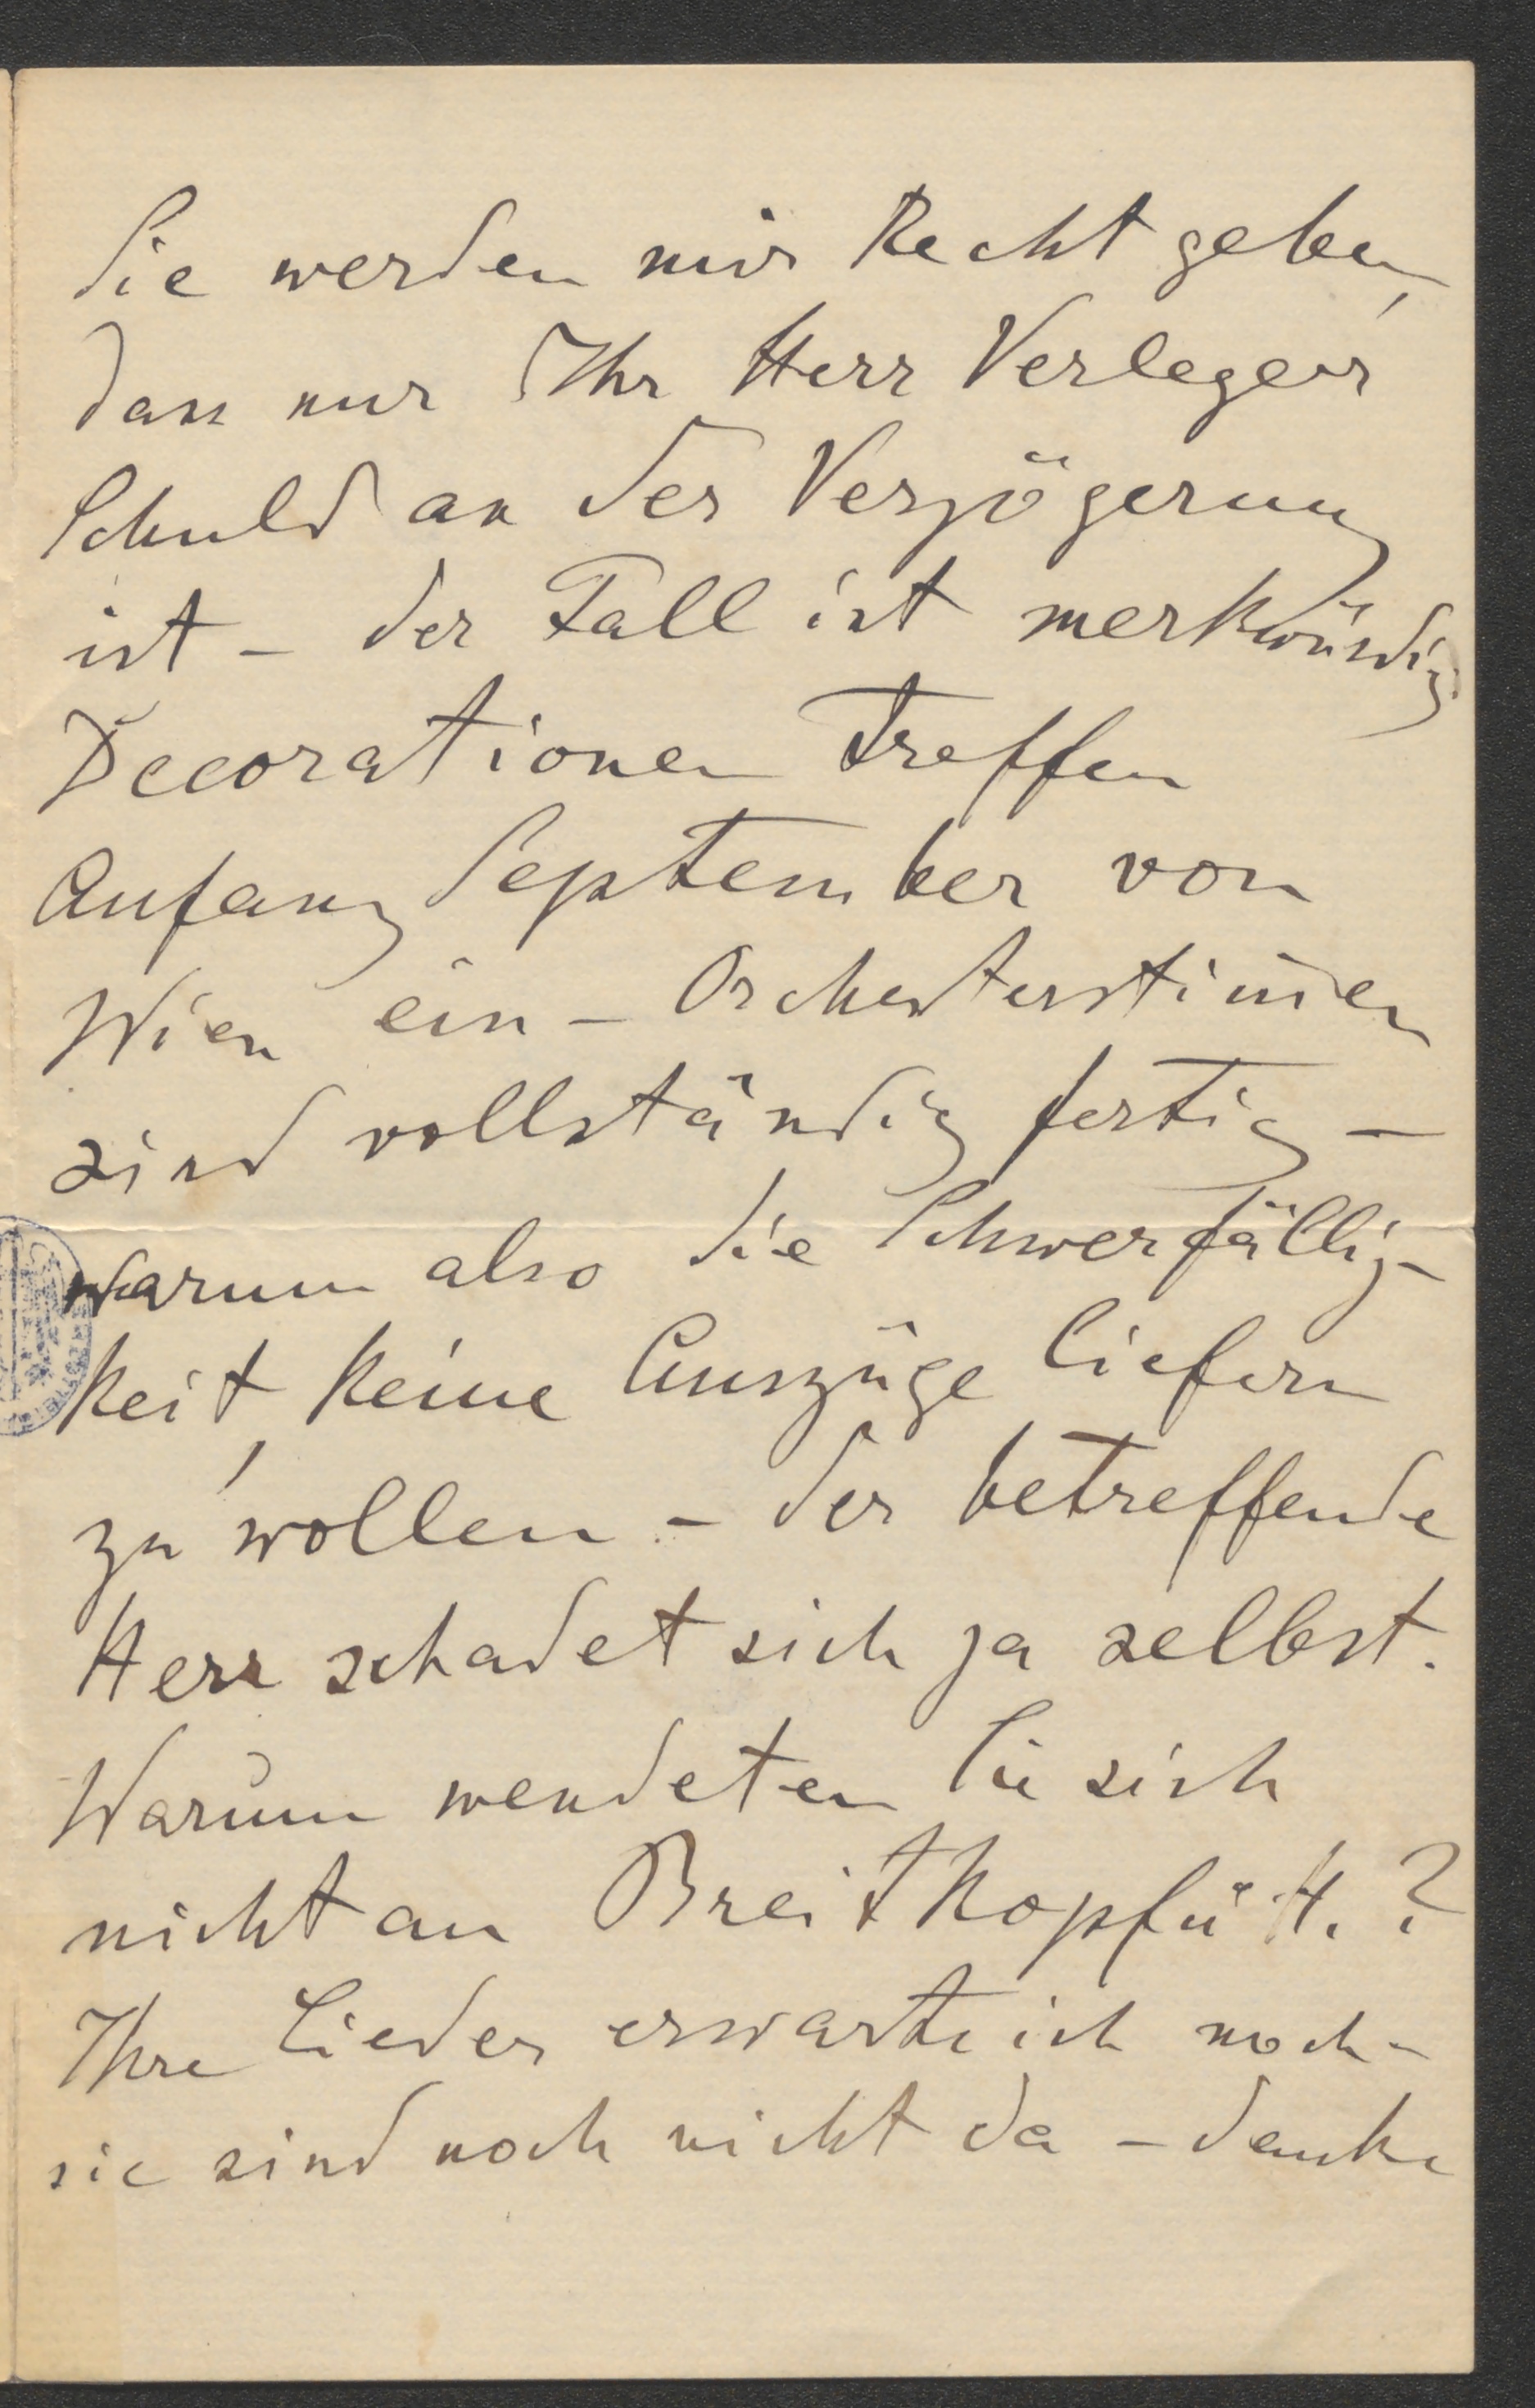 Sie werden mir Recht geben,
dass nur Ihr Herr Verleger
Schuld an der Verzögerung
ist – der Fall ist merkwürdig
Decorationen treffen
Anfang September von
Wien ein – Orchesterstim̄en
sind vollständig fertig –
warum also die Schwerfällig-
keit, keine Auszüge liefern
zu wollen – der betreffende
Herr schadet sich ja selbst.
Warum wendeten Sie sich
nicht an Breitkopf ü H. ?
Ihre Lieder erwarte ich noch –
sie sind noch nicht da – danke